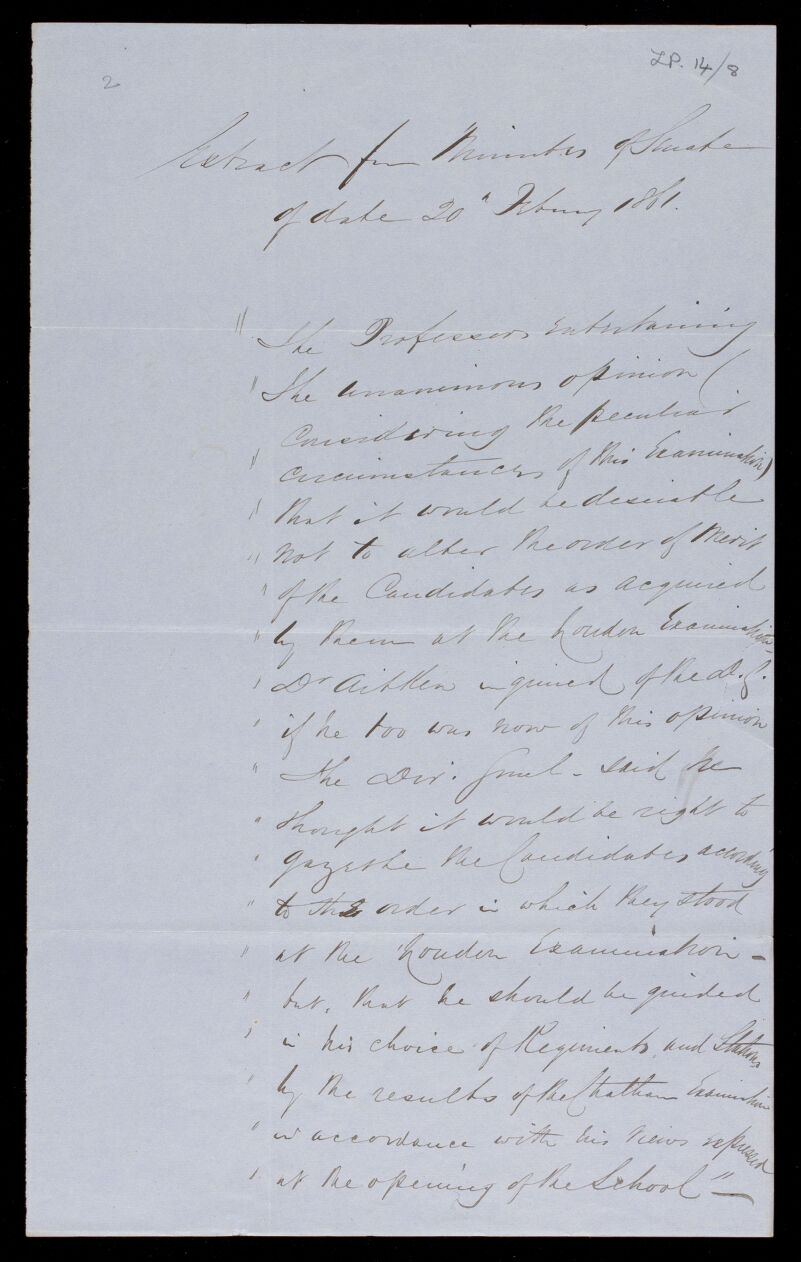 2
LP. 14/8
Extract from Minutes of Senate
of date 20th Febury 1861.
" The Professors entertaining
" the unanimous opinion (
considering the peculiar
" circumstances of this Examination)
" that it would be desirable
" not to alter the order of Merit
" of the Candidates as acquired
" by them at the London Examination -
" Dr Aitken inquired of the D.G.
" if he too was now of this opinion
" The Dir. Genl. - said he
" thought it would be right to
" gazette the Candidates according
" to the order in which they stood
" at the London Examination -
" but, that he should be guided
" in his choice of Regiments and Stations
" by the results of the Chatham Examination
" in accordance with his views expressed
" at the opening of the School" -